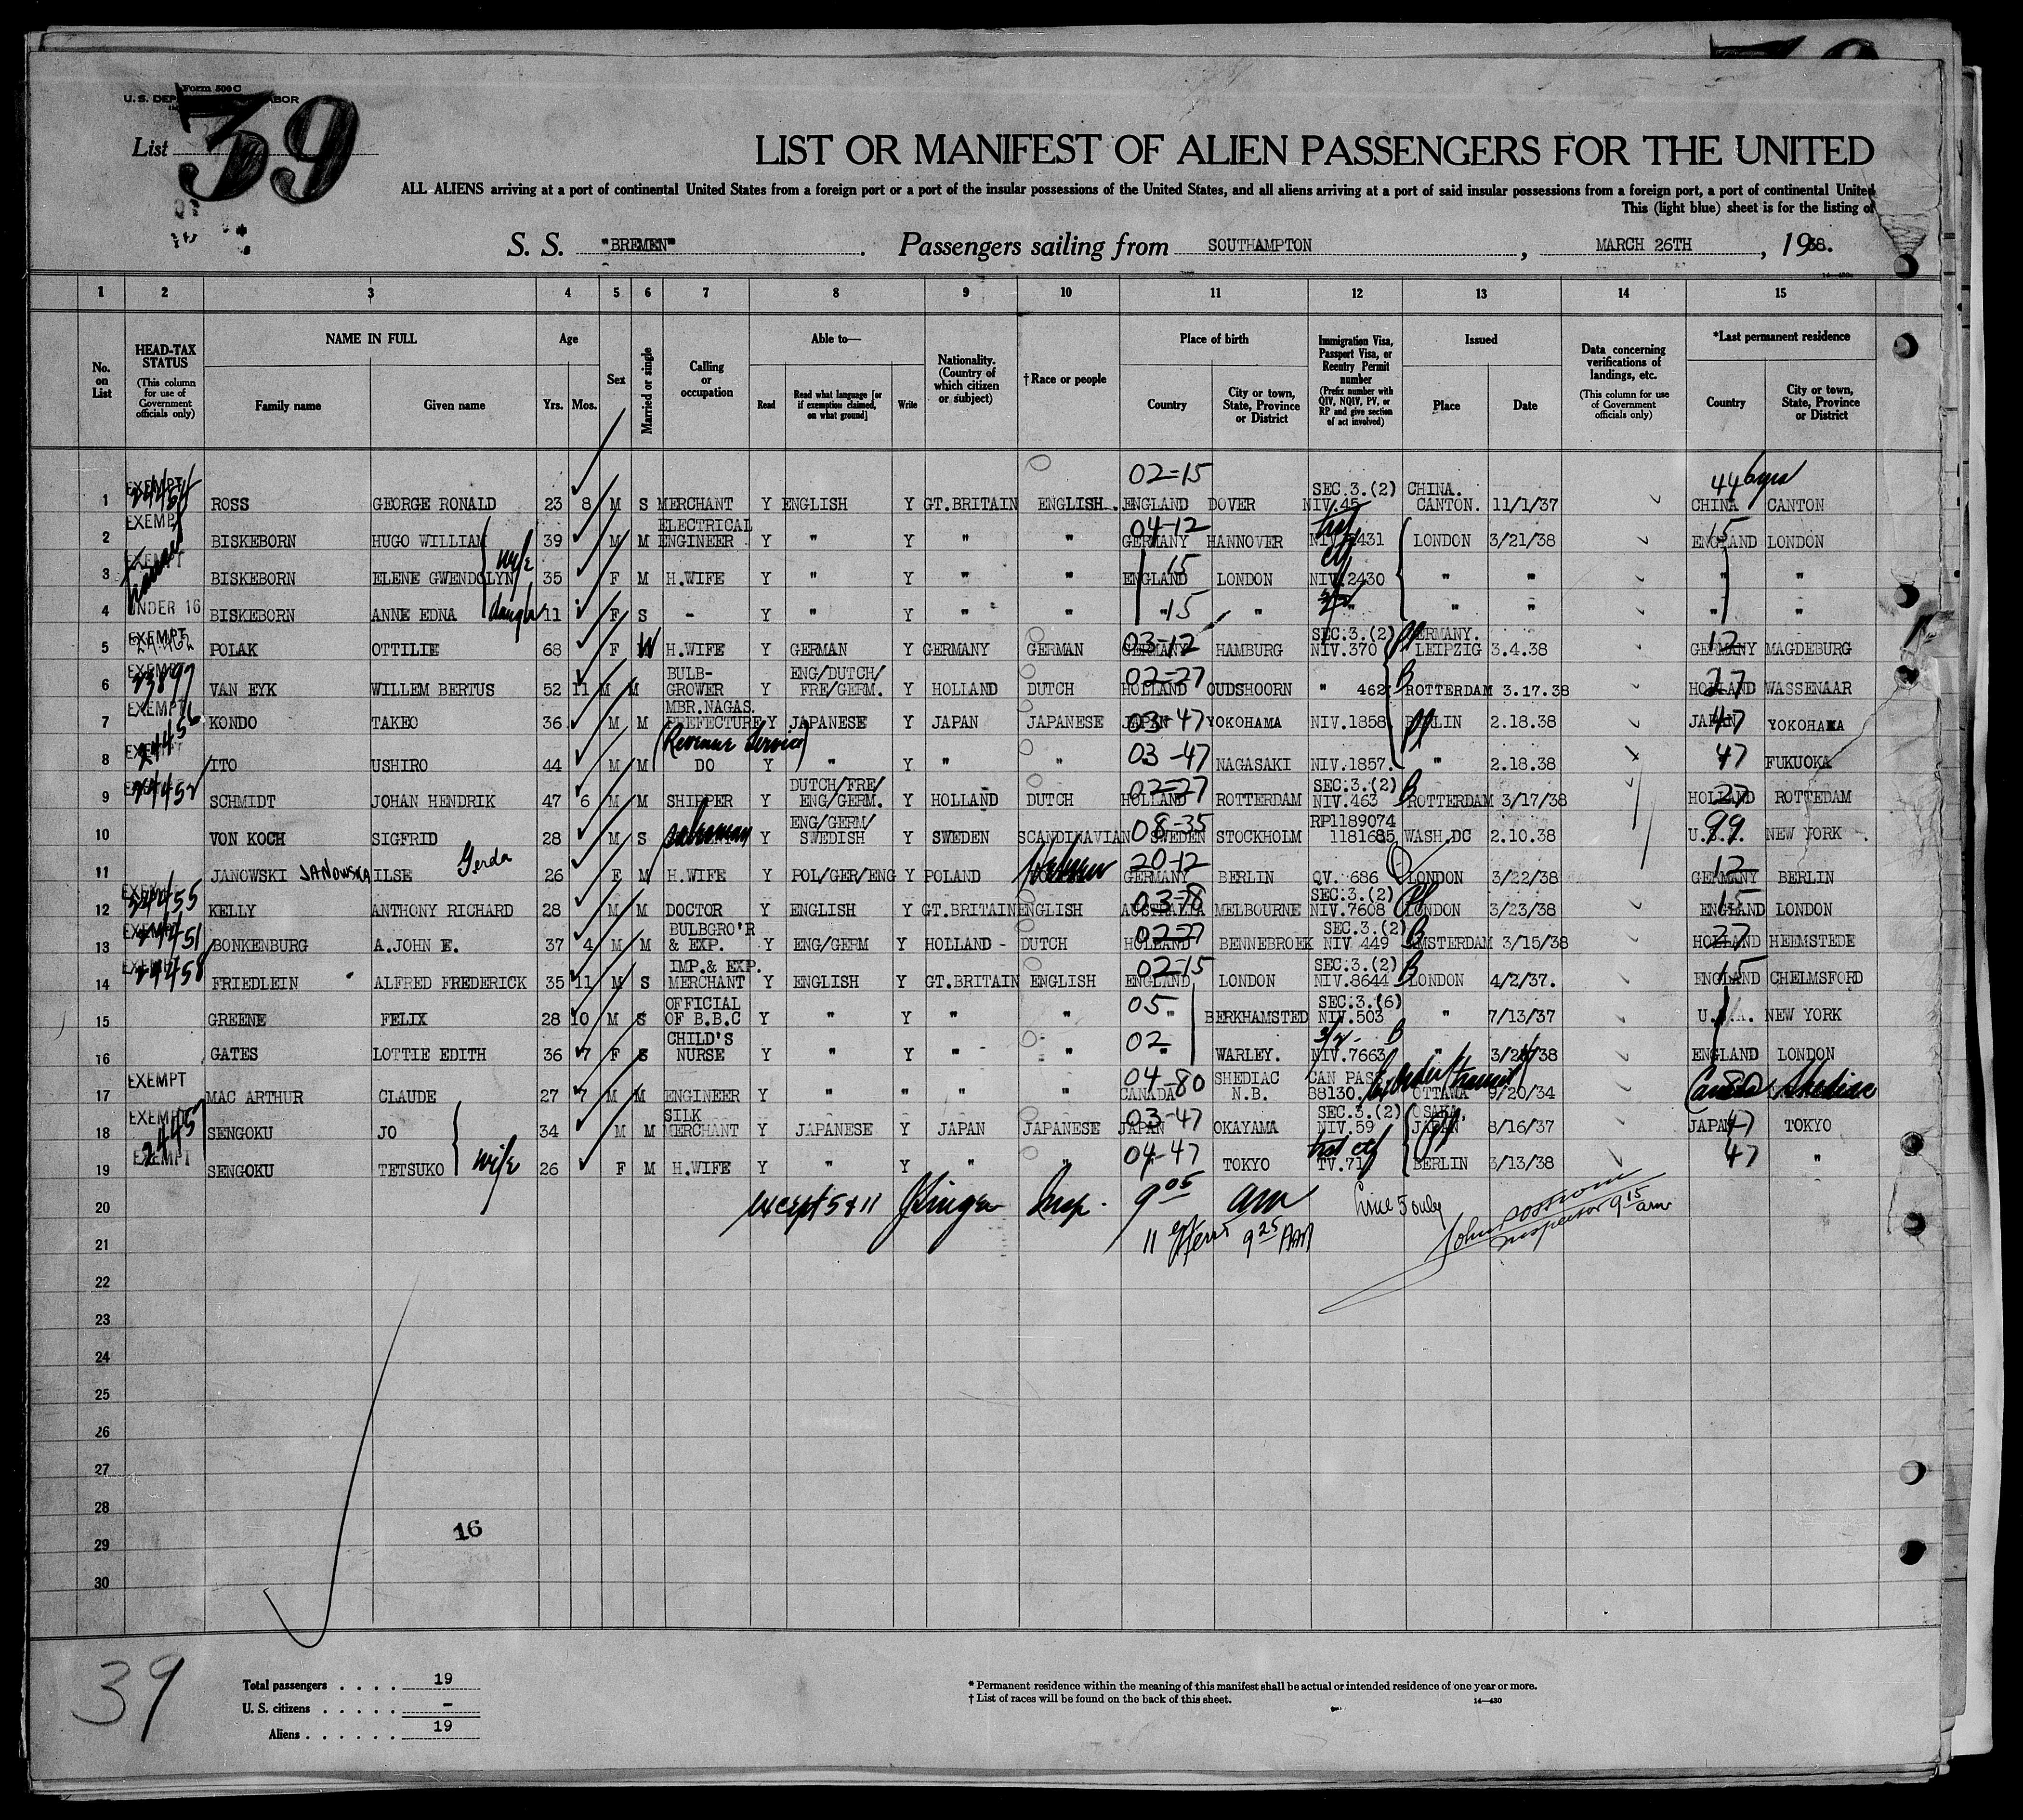 Form 500 C
U. S. DEP LABOR
List 39
LIST OR MANIFEST OF ALIEN PASSENGERS FOR THE UNITED
ALL ALIENS arriving at a port of continental United States from a foreign port or a port of the insular possessions of the United States, and all aliens arriving at a port of said insular possessions from a foreign port, a port of continental United
This (light blue) sheet is for the listing of
S. S. "BREMEN" . Passengers sailing from SOUTHAMPTON , MARCH 26TH , 1938.
1 2 3 4 5 6 7 8 9 10 11 12 13 14 15
No. on List
HEAD-TAX STATUS (This column for use of Government officials only)
NAME IN FULL Family name Given name
Age Yrs. Mos.
Sex
Married or single
Calling or occupation
Able to— Read Read what language [or if exemption claimed, on what ground] Write
Nationality. (Country of which citizen or subject)
†Race or people
Place of birth Country City or town, State, Province or District
Immigration Visa, Passport Visa, or Reentry Permit number (Prefix number with QIV, NQIV, PV, or RP and give section of act involved)
Issued Place Date
Data concerning verifications of landings, etc. (This column for use of Government officials only)
*Last permanent residence Country City or town, State, Province or District
1 EXEMPT ROSS GEORGE RONALD 23 8 M S MERCHANT Y ENGLISH Y GT.BRITAIN ENGLISH. 02-15 ENGLAND DOVER SEC.3.(2) NIV.45 CHINA. CANTON. 11/1/37 CHINA CANTON
2 EXEMPT BISKEBORN HUGO WILLIAM 39 M M ELECTRICAL ENGINEER Y " Y " " 04-12 GERMANY HANNOVER NIV.2431 LONDON 3/21/38 15 ENGLAND LONDON
3 EXEMPT BISKEBORN ELENE GWENDOLYN wife 35 F M H.WIFE Y " Y " " 15 ENGLAND LONDON NIV.2430 " " " "
4 UNDER 16 BISKEBORN ANNE EDNA daugh 11 F S - Y " Y " " " 15 " " " " " "
5 EXEMPT POLAK OTTILIE 68 F W H.WIFE Y GERMAN Y GERMANY GERMAN 03-12 GERMANY HAMBURG SEC.3.(2) NIV.370 GERMANY. LEIPZIG 3.4.38 12 GERMANY MAGDEBURG
6 EXEMPT 23897 VAN EYK WILLEM BERTUS 52 11 M M BULB-GROWER Y ENG/DUTCH/FRE/GERM. Y HOLLAND DUTCH 02-27 HOLLAND OUDSHOORN " 462 ROTTERDAM 3.17.38 27 HOLLAND WASSENAAR
7 EXEMPT 24456 KONDO TAKEO 36 M M MBR.NAGAS. PREFECTURE Y JAPANESE Y JAPAN JAPANESE 03-47 JAPAN YOKOHAMA NIV.1858 BERLIN 2.18.38 JAPAN 47 YOKOHAMA
8 EXEMPT ITO USHIRO 44 M M (Revenue Service) DO Y " Y " " 03-47 NAGASAKI NIV.1857. " 2.18.38 47 FUKUOKA
9 24452 SCHMIDT JOHAN HENDRIK 47 6 M M SHIPPER Y DUTCH/FRE/ENG/GERM. Y HOLLAND DUTCH 02-27 HOLLAND ROTTERDAM SEC.3.(2) NIV.463 ROTTERDAM 3/17/38 27 HOLLAND ROTTEDAM
10 VON KOCH SIGFRID 28 M S salesman Y ENG/GERM/SWEDISH Y SWEDEN SCANDINAVIAN 08-35 SWEDEN STOCKHOLM RP1189074 1181685 WASH.DC 2.10.38 99 U.S. NEW YORK
11 JANOWSKI JANOWSKA ILSE Gerda 26 F M H.WIFE Y POL/GER/ENG Y POLAND Hebrew 20-12 GERMANY BERLIN QV. 686 LONDON 3/22/38 12 GERMANY BERLIN
12 EXEMPT 24455 KELLY ANTHONY RICHARD 28 M M DOCTOR Y ENGLISH Y GT.BRITAIN ENGLISH 03-78 AUSTRALIA MELBOURNE SEC.3.(2) NIV.7608 LONDON 3/23/38 15 ENGLAND LONDON
13 EXEMPT 24451 BONKENBURG A.JOHN E. 37 4 M M BULBGRO'R & EXP. Y ENG/GERM Y HOLLAND - DUTCH 02-27 HOLLAND BENNEBROEK SEC.3.(2) NIV 449 AMSTERDAM 3/15/38 27 HOLLAND HEEMSTEDE
14 EXEMPT 24458 FRIEDLEIN ALFRED FREDERICK 35 11 M S IMP.& EXP. MERCHANT Y ENGLISH Y GT.BRITAIN ENGLISH 02-15 ENGLAND LONDON SEC.3.(2) NIV.8644 LONDON 4/2/37. 15 ENGLAND CHELMSFORD
15 GREENE FELIX 28 10 M S OFFICIAL OF B.B.C Y " Y " " 05 " BERKHAMSTED SEC.3.(6) NIV.503 " 7/13/37 U.S.A. NEW YORK
16 GATES LOTTIE EDITH 36 7 F S CHILD'S NURSE Y " Y " " 02 " WARLEY. NIV.7663 " 3/24/38 ENGLAND LONDON
17 EXEMPT MAC ARTHUR CLAUDE 27 7 M M ENGINEER Y " " " " 04-80 CANADA SHEDIAC N.B. CAN PASS 88130. transit OTTAWA 9/20/34 Canada 80 Shediac
18 EXEMPT 24457 SENGOKU JO 34 M M SILK MERCHANT Y JAPANESE Y JAPAN JAPANESE 03-47 JAPAN OKAYAMA SEC.3.(2) NIV.59 OSAKA. JAPAN 8/16/37 JAPAN 47 TOKYO
19 EXEMPT SENGOKU TETSUKO wife 26 F M H.WIFE Y " Y " " 04-47 TOKYO TV.71 BERLIN 3/13/38 47 "
20 except 5 & 11 Insp. 9 05 am Line 5 only John Inspector 9 15 am
21 11 9 25 AM
22
23
24
25
26
27
28
29
30
16
39
Total passengers . . . . 19
U. S. citizens . . . . . -
Aliens . . . . . . 19
* Permanent residence within the meaning of this manifest shall be actual or intended residence of one year or more.
† List of races will be found on the back of this sheet.
14—430